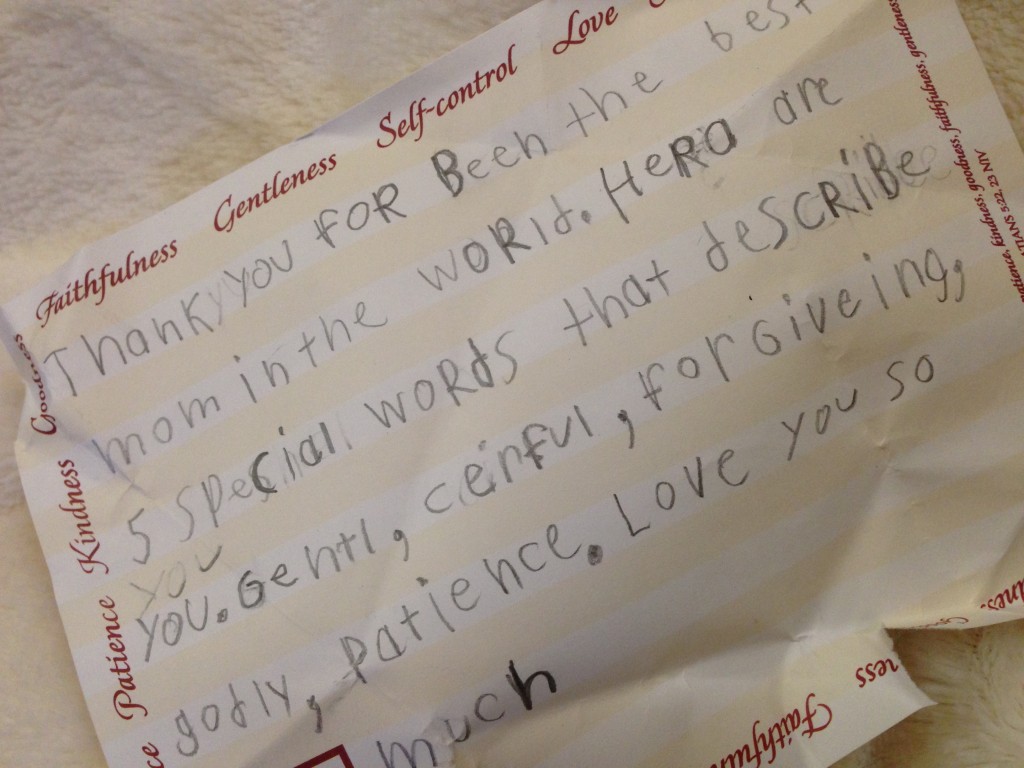 Faithfulness Gentleness Self-control Love
Goodness
Kindness
Patience
Thank you FOR Been the best
mom in the WORld. HeRO are
5 SPeCial WORdS that deSCRiBe
you
YOU. Gentl, ceirful, forGiveing,
godly, Patience. Love you so
much
patience, kindness, goodness, faithfulness, gentleness
5:22, 23 NIV
ness